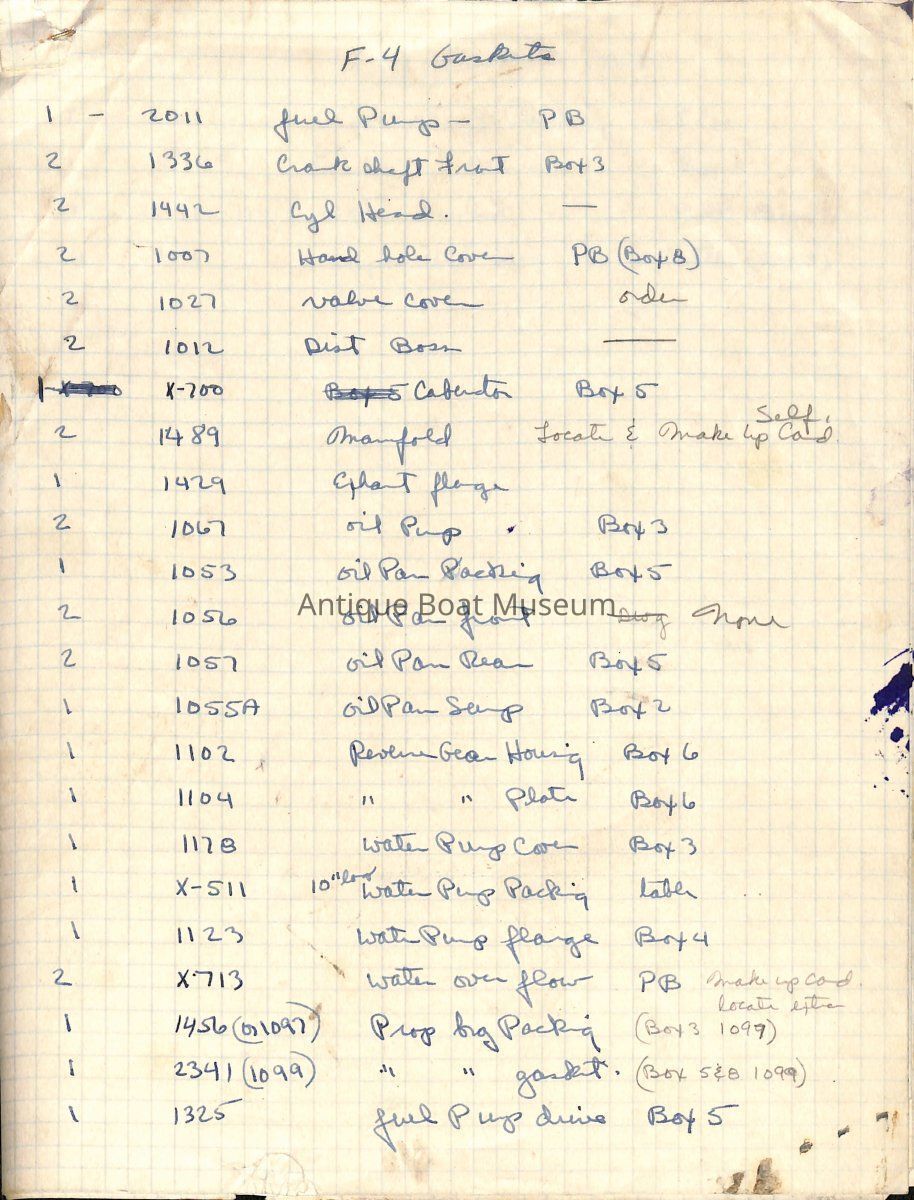 F-4 Gaskets
1 - 2011 fuel Pump - PB
2 1336 Crank shaft Front Box 3
2 1442 Cyl Head. —
2 1007 Hand hole Cover PB (Box 8)
2 1027 valve cover order
2 1012 Dist Boss —
1 X-700 X-700 Box 5 Caburetor Box 5
Self.
2 1489 Manifold Locate & Make up Card
1 1429 Exhaust flange
2 1067 oil Pump Box 3
1 1053 oil Pan Packing Box 5
Antique Boat Museum
2 1056 oil Pan front None
2 1057 oil Pan Rear Box 5
1 1055A oil Pan Sump Box 2
1 1102 Reverse Gear Housing Box 6
1 1104 " " Plate Box 6
1 1178 water Pump Cover Box 3
1 X-511 10" water Pump Packing table
1 1123 water Pump flange Box 4
2 X-713 water over flow PB Make up Card
Locate extra
1 1456 (or 1097) Prop brg Packing (Box 3 1099)
1 2341 (1099) " " gasket. (Box 5&8 1099)
1 1325 fuel Pump drive Box 5